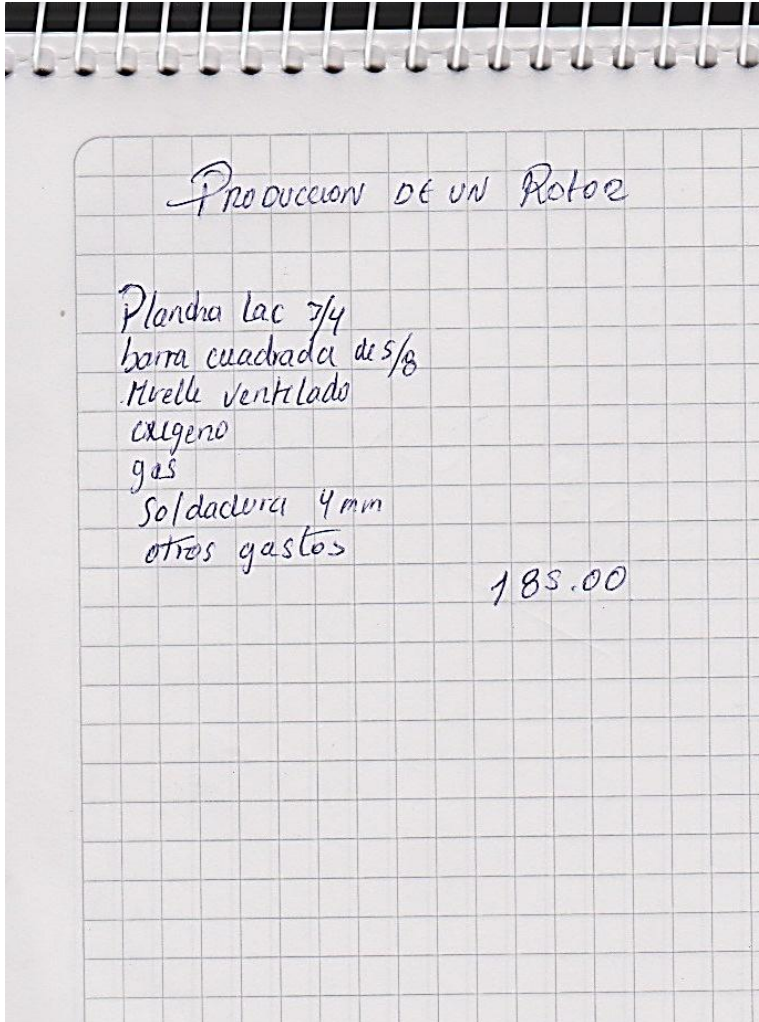 PRODUCCION DE UN Rotor
Plancha Lac 3/4
barra cuadrada de 5/8
Muelle ventilado
oxigeno
gas
Soldadura 4 mm
otros gastos
185.00